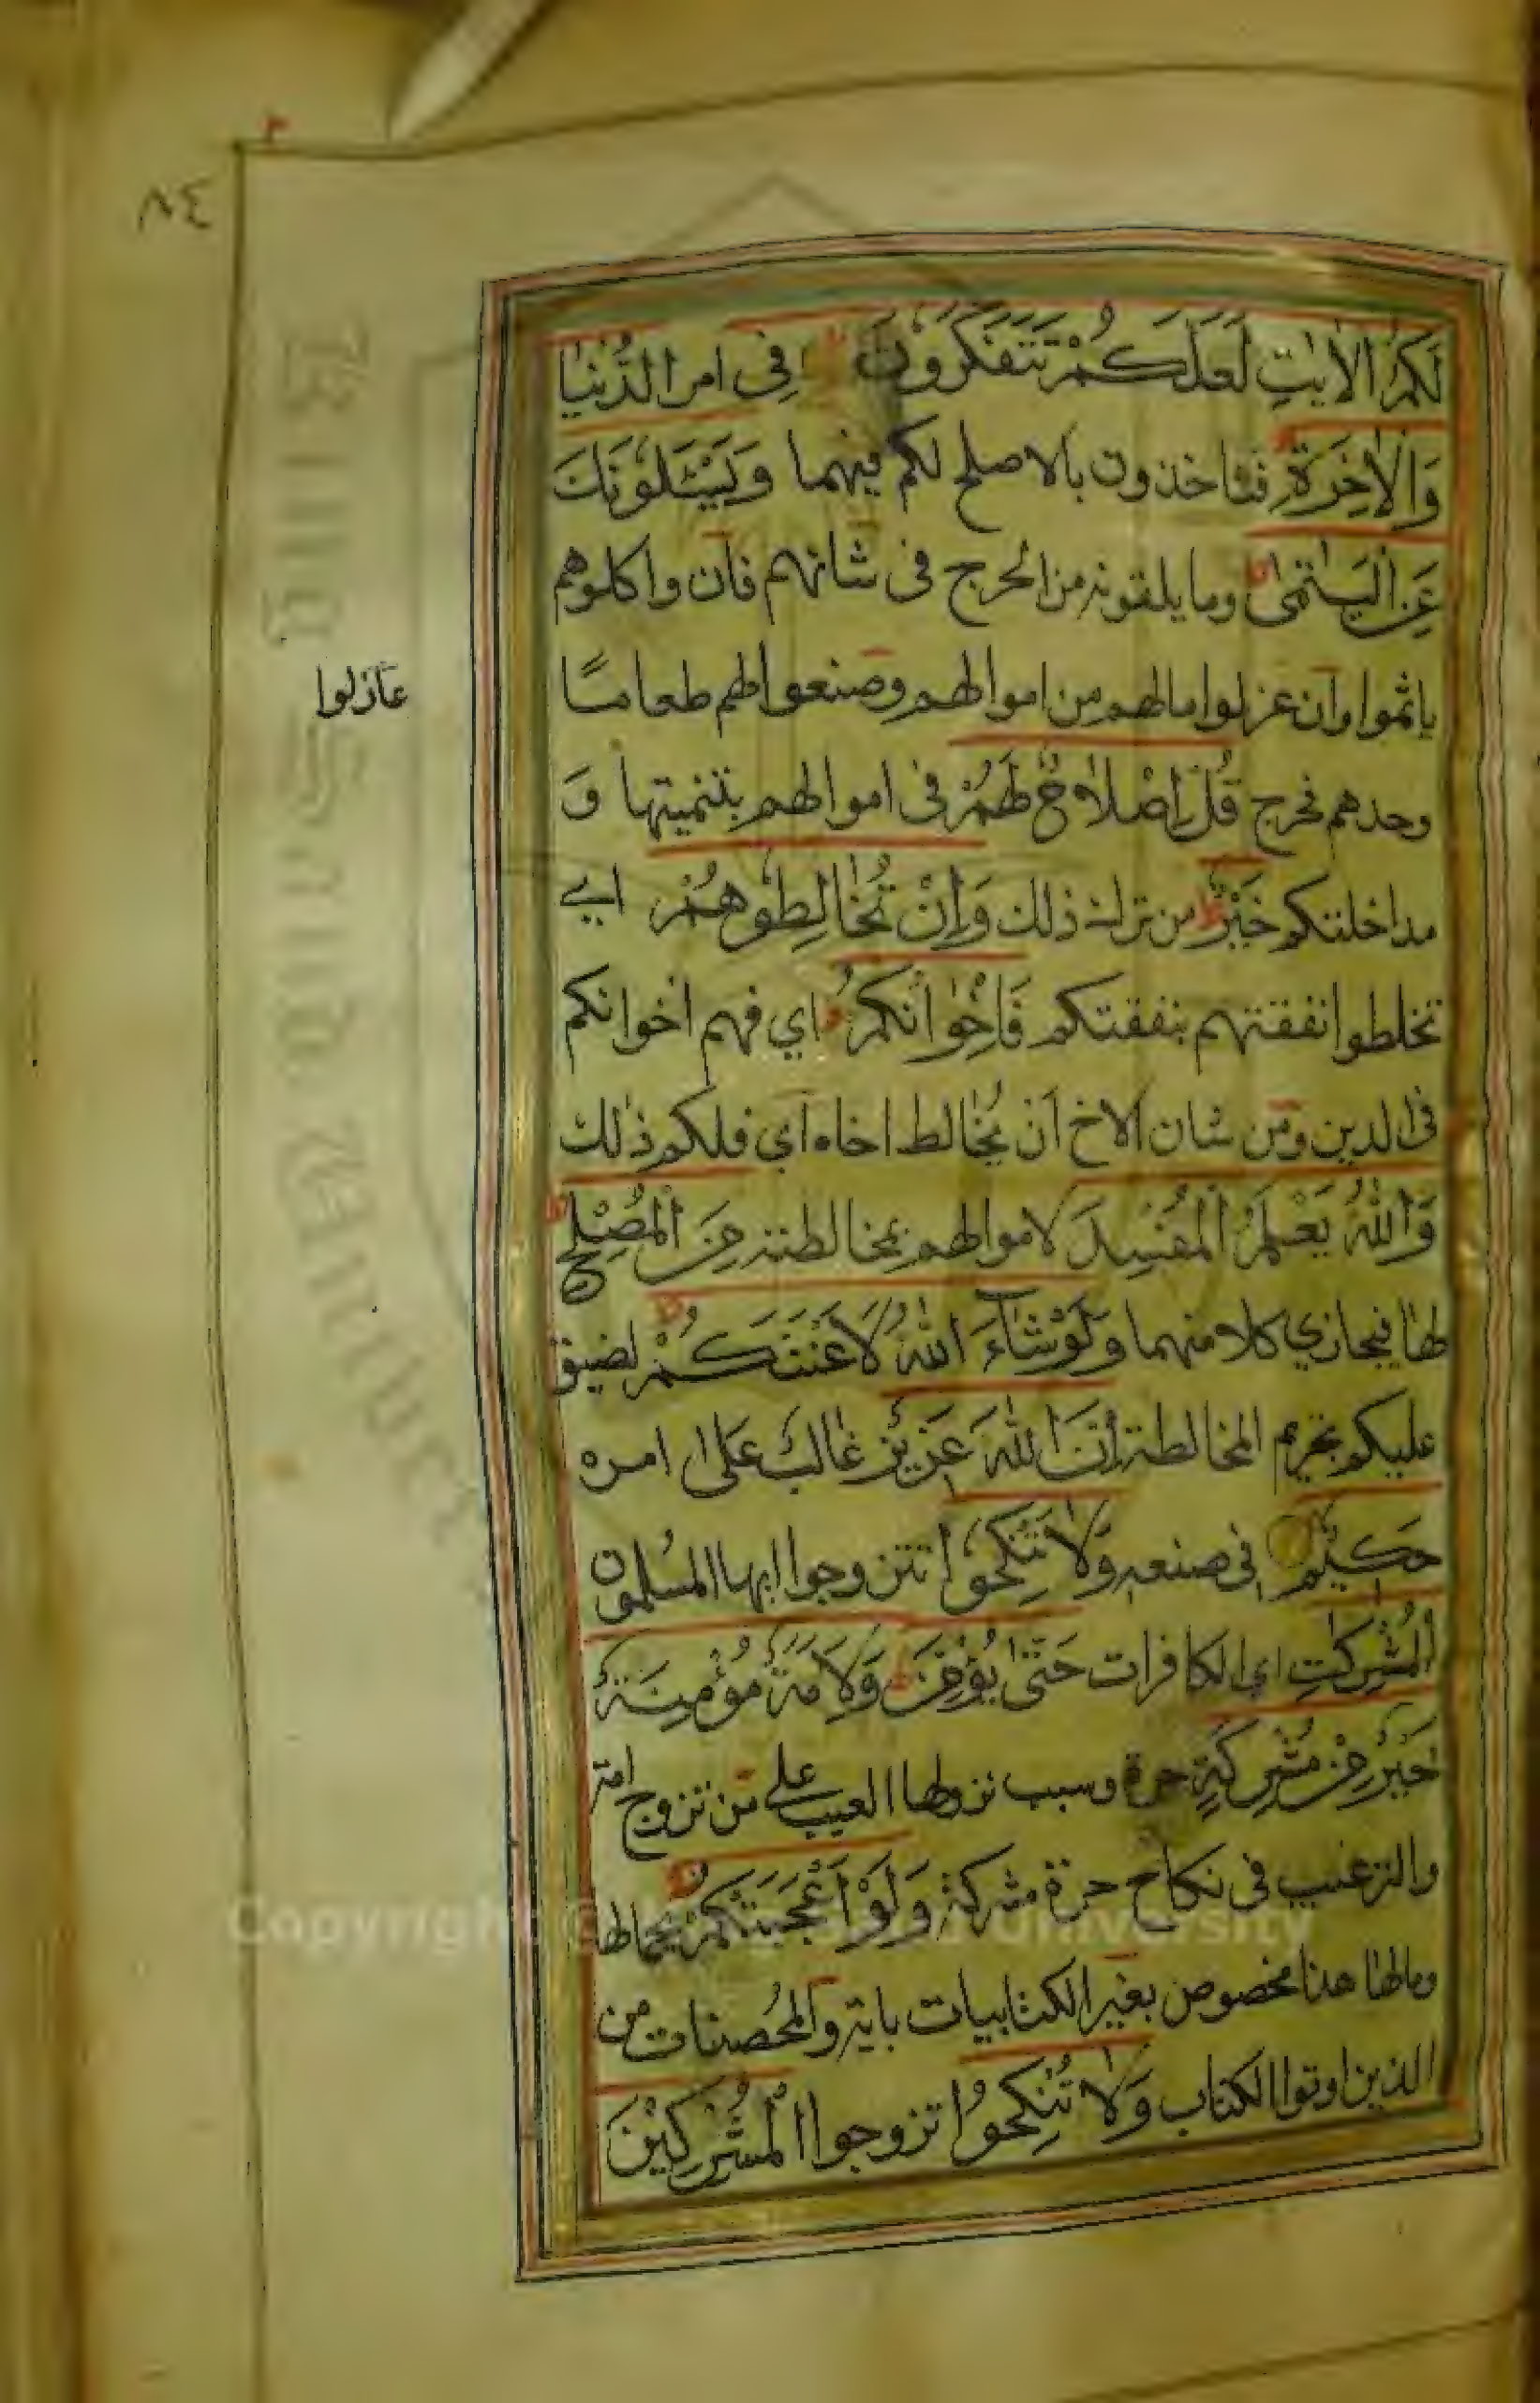 ٨٤
لَكُمُ الْاٰيٰتِ لَعَلَّكُمْ تَتَفَكَّرُوْنَ فِى امر الدُّنْيَا
وَالْاٰخِرَةِ فتاخذون بالاصلح لكم فيهما وَيَسْـَٔلُوْنَكَ
عَنِ الْيَتٰمٰى وما يلقونه من الحرج فى شانهم فان واكلوهم
ياثموا وان عزلوا مالهم من اموالهم وصنعوا لهم طعاما
عازلوا
وحدهم فحرج قُلْ اِصْلَاحٌ لَهُمْ فى اموالهم بتنميتها وَ
مداخلتكم خَيْرٌ من ترك ذلك وَاِنْ تُخَالِطُوْهُمْ اي
تخلطوا نفقتهم بنفقتكم فَاِخْوَانُكُمْ اي فهم اخوانكم
فى الدين ومن شان الاخ ان يُخالط اخاه اي فلكم ذلك
وَاللّٰهُ يَعْلَمُ الْمُفْسِدَ لاموالهم بمخالطته مِنَ الْمُصْلِحِ
لها فيجازي كلا منهما وَلَوْ شَاءَ اللّٰهُ لَاَعْنَتَكُمْ لضيق
عليكم بتحريم المخالطة اِنَّ اللّٰهَ عَزِيْزٌ غالب على امره
حَكِيْمٌ فى صنعه وَلَا تَنْكِحُوا تتزوجوا ايها المسلمون
الْمُشْرِكٰتِ اي الكافرات حَتّٰى يُؤْمِنَّ وَلَاَمَةٌ مُؤْمِنَةٌ
خَيْرٌ مِنْ مُشْرِكَةٍ حرة وسبب نزولها العيب على من تزوج امة
والترغيب فى نكاح حرة مشركة وَلَوْ اَعْجَبَتْكُمْ بجمالها
ومالها هذا مخصوص بغير الكتابيات باية والمُحصنات من
الذين اوتوا الكتاب وَلَا تُنْكِحُوا تزوجوا الْمُشْرِكِيْنَ